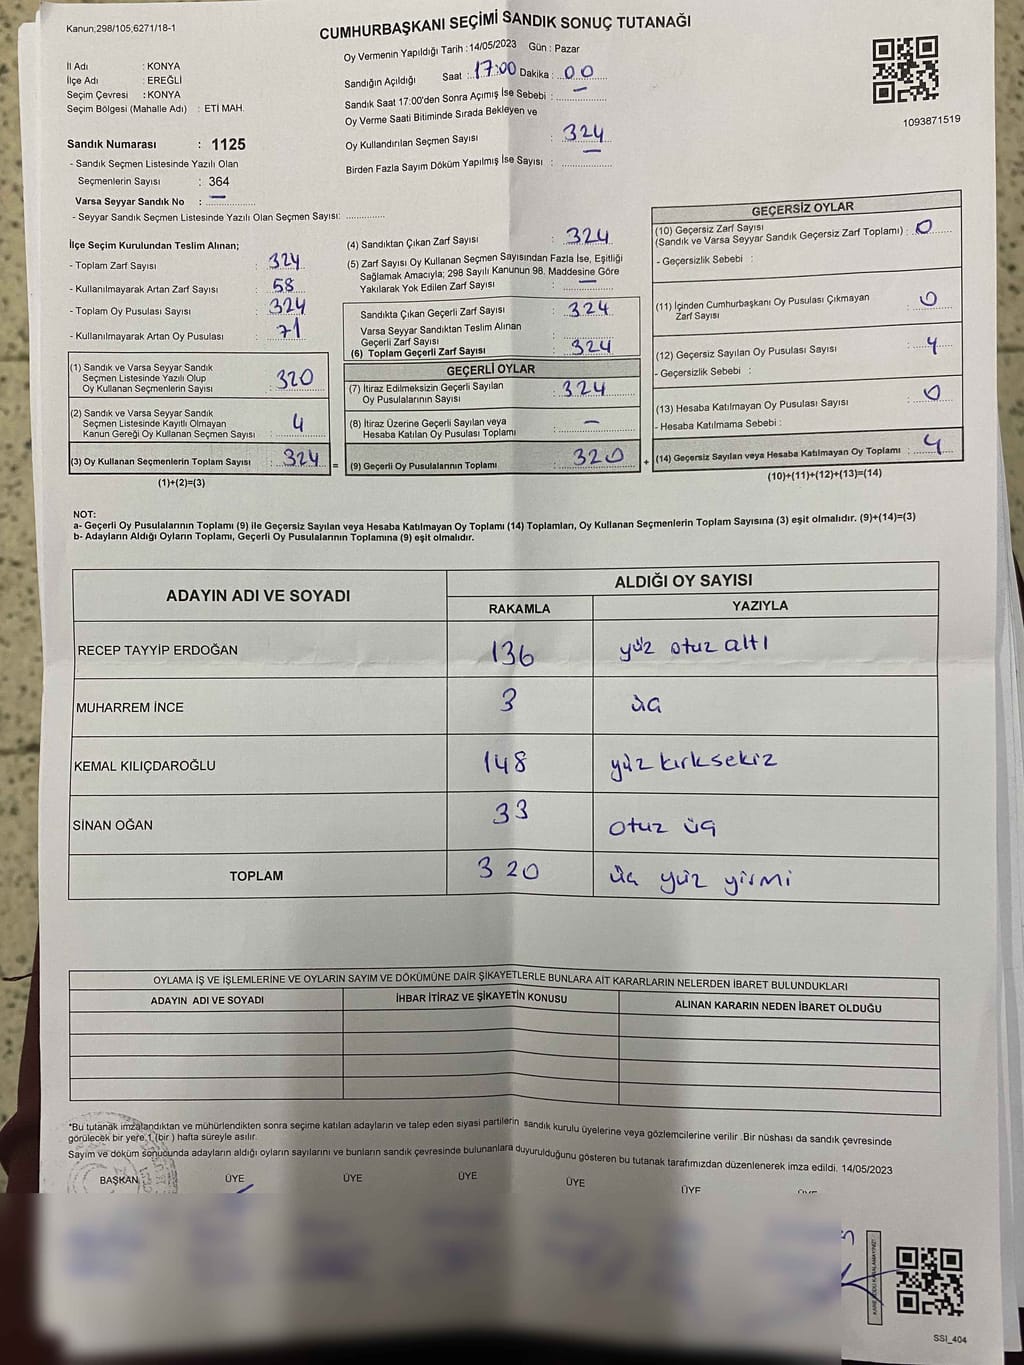 Kanun;298/105,6271/18-1
CUMHURBAŞKANI SEÇİMİ SANDIK SONUÇ TUTANAĞI
Oy Vermenin Yapıldığı Tarih : 14/05/2023 Gün : Pazar
İl Adı : KONYA
İlçe Adı : EREĞLİ
Seçim Çevresi : KONYA
Seçim Bölgesi (Mahalle Adı) : ETİ MAH.
Sandığın Açıldığı Saat : 17:00 Dakika : 00
Sandık Saat 17:00'den Sonra Açımış İse Sebebi : —
Oy Verme Saati Bitiminde Sırada Bekleyen ve
Oy Kullandırılan Seçmen Sayısı : 324
Birden Fazla Sayım Döküm Yapılmış İse Sayısı : —
1093871519
Sandık Numarası : 1125
- Sandık Seçmen Listesinde Yazılı Olan
Seçmenlerin Sayısı : 364
Varsa Seyyar Sandık No : —
- Seyyar Sandık Seçmen Listesinde Yazılı Olan Seçmen Sayısı: ..............
İlçe Seçim Kurulundan Teslim Alınan;
- Toplam Zarf Sayısı : 324
- Kullanılmayarak Artan Zarf Sayısı : 58
- Toplam Oy Pusulası Sayısı : 324
- Kullanılmayarak Artan Oy Pusulası : 71
(1) Sandık ve Varsa Seyyar Sandık
Seçmen Listesinde Yazılı Olup
Oy Kullanan Seçmenlerin Sayısı : 320
(2) Sandık ve Varsa Seyyar Sandık
Seçmen Listesinde Kayıtlı Olmayan
Kanun Gereği Oy Kullanan Seçmen Sayısı : 4
(3) Oy Kullanan Seçmenlerin Toplam Sayısı : 324 =
(1)+(2)=(3)
(4) Sandıktan Çıkan Zarf Sayısı : 324
(5) Zarf Sayısı Oy Kullanan Seçmen Sayısından Fazla İse, Eşitliği
Sağlamak Amacıyla; 298 Sayılı Kanunun 98. Maddesine Göre
Yakılarak Yok Edilen Zarf Sayısı : —
Sandıkta Çıkan Geçerli Zarf Sayısı : 324
Varsa Seyyar Sandıktan Teslim Alınan
Geçerli Zarf Sayısı :
(6) Toplam Geçerli Zarf Sayısı : 324
GEÇERLİ OYLAR
(7) İtiraz Edilmeksizin Geçerli Sayılan
Oy Pusulalarının Sayısı : 324
(8) İtiraz Üzerine Geçerli Sayılan veya
Hesaba Katılan Oy Pusulası Toplamı : —
(9) Geçerli Oy Pusulalarının Toplamı : 320 +
GEÇERSİZ OYLAR
(10) Geçersiz Zarf Sayısı
(Sandık ve Varsa Seyyar Sandık Geçersiz Zarf Toplamı) : 0
- Geçersizlik Sebebi :
(11) İçinden Cumhurbaşkanı Oy Pusulası Çıkmayan
Zarf Sayısı : 0
(12) Geçersiz Sayılan Oy Pusulası Sayısı : 4
- Geçersizlik Sebebi :
(13) Hesaba Katılmayan Oy Pusulası Sayısı : 0
- Hesaba Katılmama Sebebi :
(14) Geçersiz Sayılan veya Hesaba Katılmayan Oy Toplamı : 4
(10)+(11)+(12)+(13)=(14)
NOT:
a- Geçerli Oy Pusulalarının Toplamı (9) ile Geçersiz Sayılan veya Hesaba Katılmayan Oy Toplamı (14) Toplamları, Oy Kullanan Seçmenlerin Toplam Sayısına (3) eşit olmalıdır. (9)+(14)=(3)
b- Adayların Aldığı Oyların Toplamı, Geçerli Oy Pusulalarının Toplamına (9) eşit olmalıdır.
ADAYIN ADI VE SOYADI ALDIĞI OY SAYISI
RAKAMLA YAZIYLA
RECEP TAYYİP ERDOĞAN 136 yüz otuz altı
MUHARREM İNCE 3 üç
KEMAL KILIÇDAROĞLU 148 yüz kırksekiz
SİNAN OĞAN 33 otuz üç
TOPLAM 320 üç yüz yirmi
OYLAMA İŞ VE İŞLEMLERİNE VE OYLARIN SAYIM VE DÖKÜMÜNE DAİR ŞİKAYETLERLE BUNLARA AİT KARARLARIN NELERDEN İBARET BULUNDUKLARI
ADAYIN ADI VE SOYADI İHBAR İTİRAZ VE ŞİKAYETİN KONUSU ALINAN KARARIN NEDEN İBARET OLDUĞU
*Bu tutanak imzalandıktan ve mühürlendikten sonra seçime katılan adayların ve talep eden siyasi partilerin sandık kurulu üyelerine veya gözlemcilerine verilir .Bir nüshası da sandık çevresinde
görülecek bir yere 1 (bir ) hafta süreyle asılır.
Sayım ve döküm sonucunda adayların aldığı oyların sayılarını ve bunların sandık çevresinde bulunanlara duyurulduğunu gösteren bu tutanak tarafımızdan düzenlenerek imza edildi. 14/05/2023
BAŞKAN ÜYE ÜYE ÜYE ÜYE ÜYE ÜYE
SSI_404